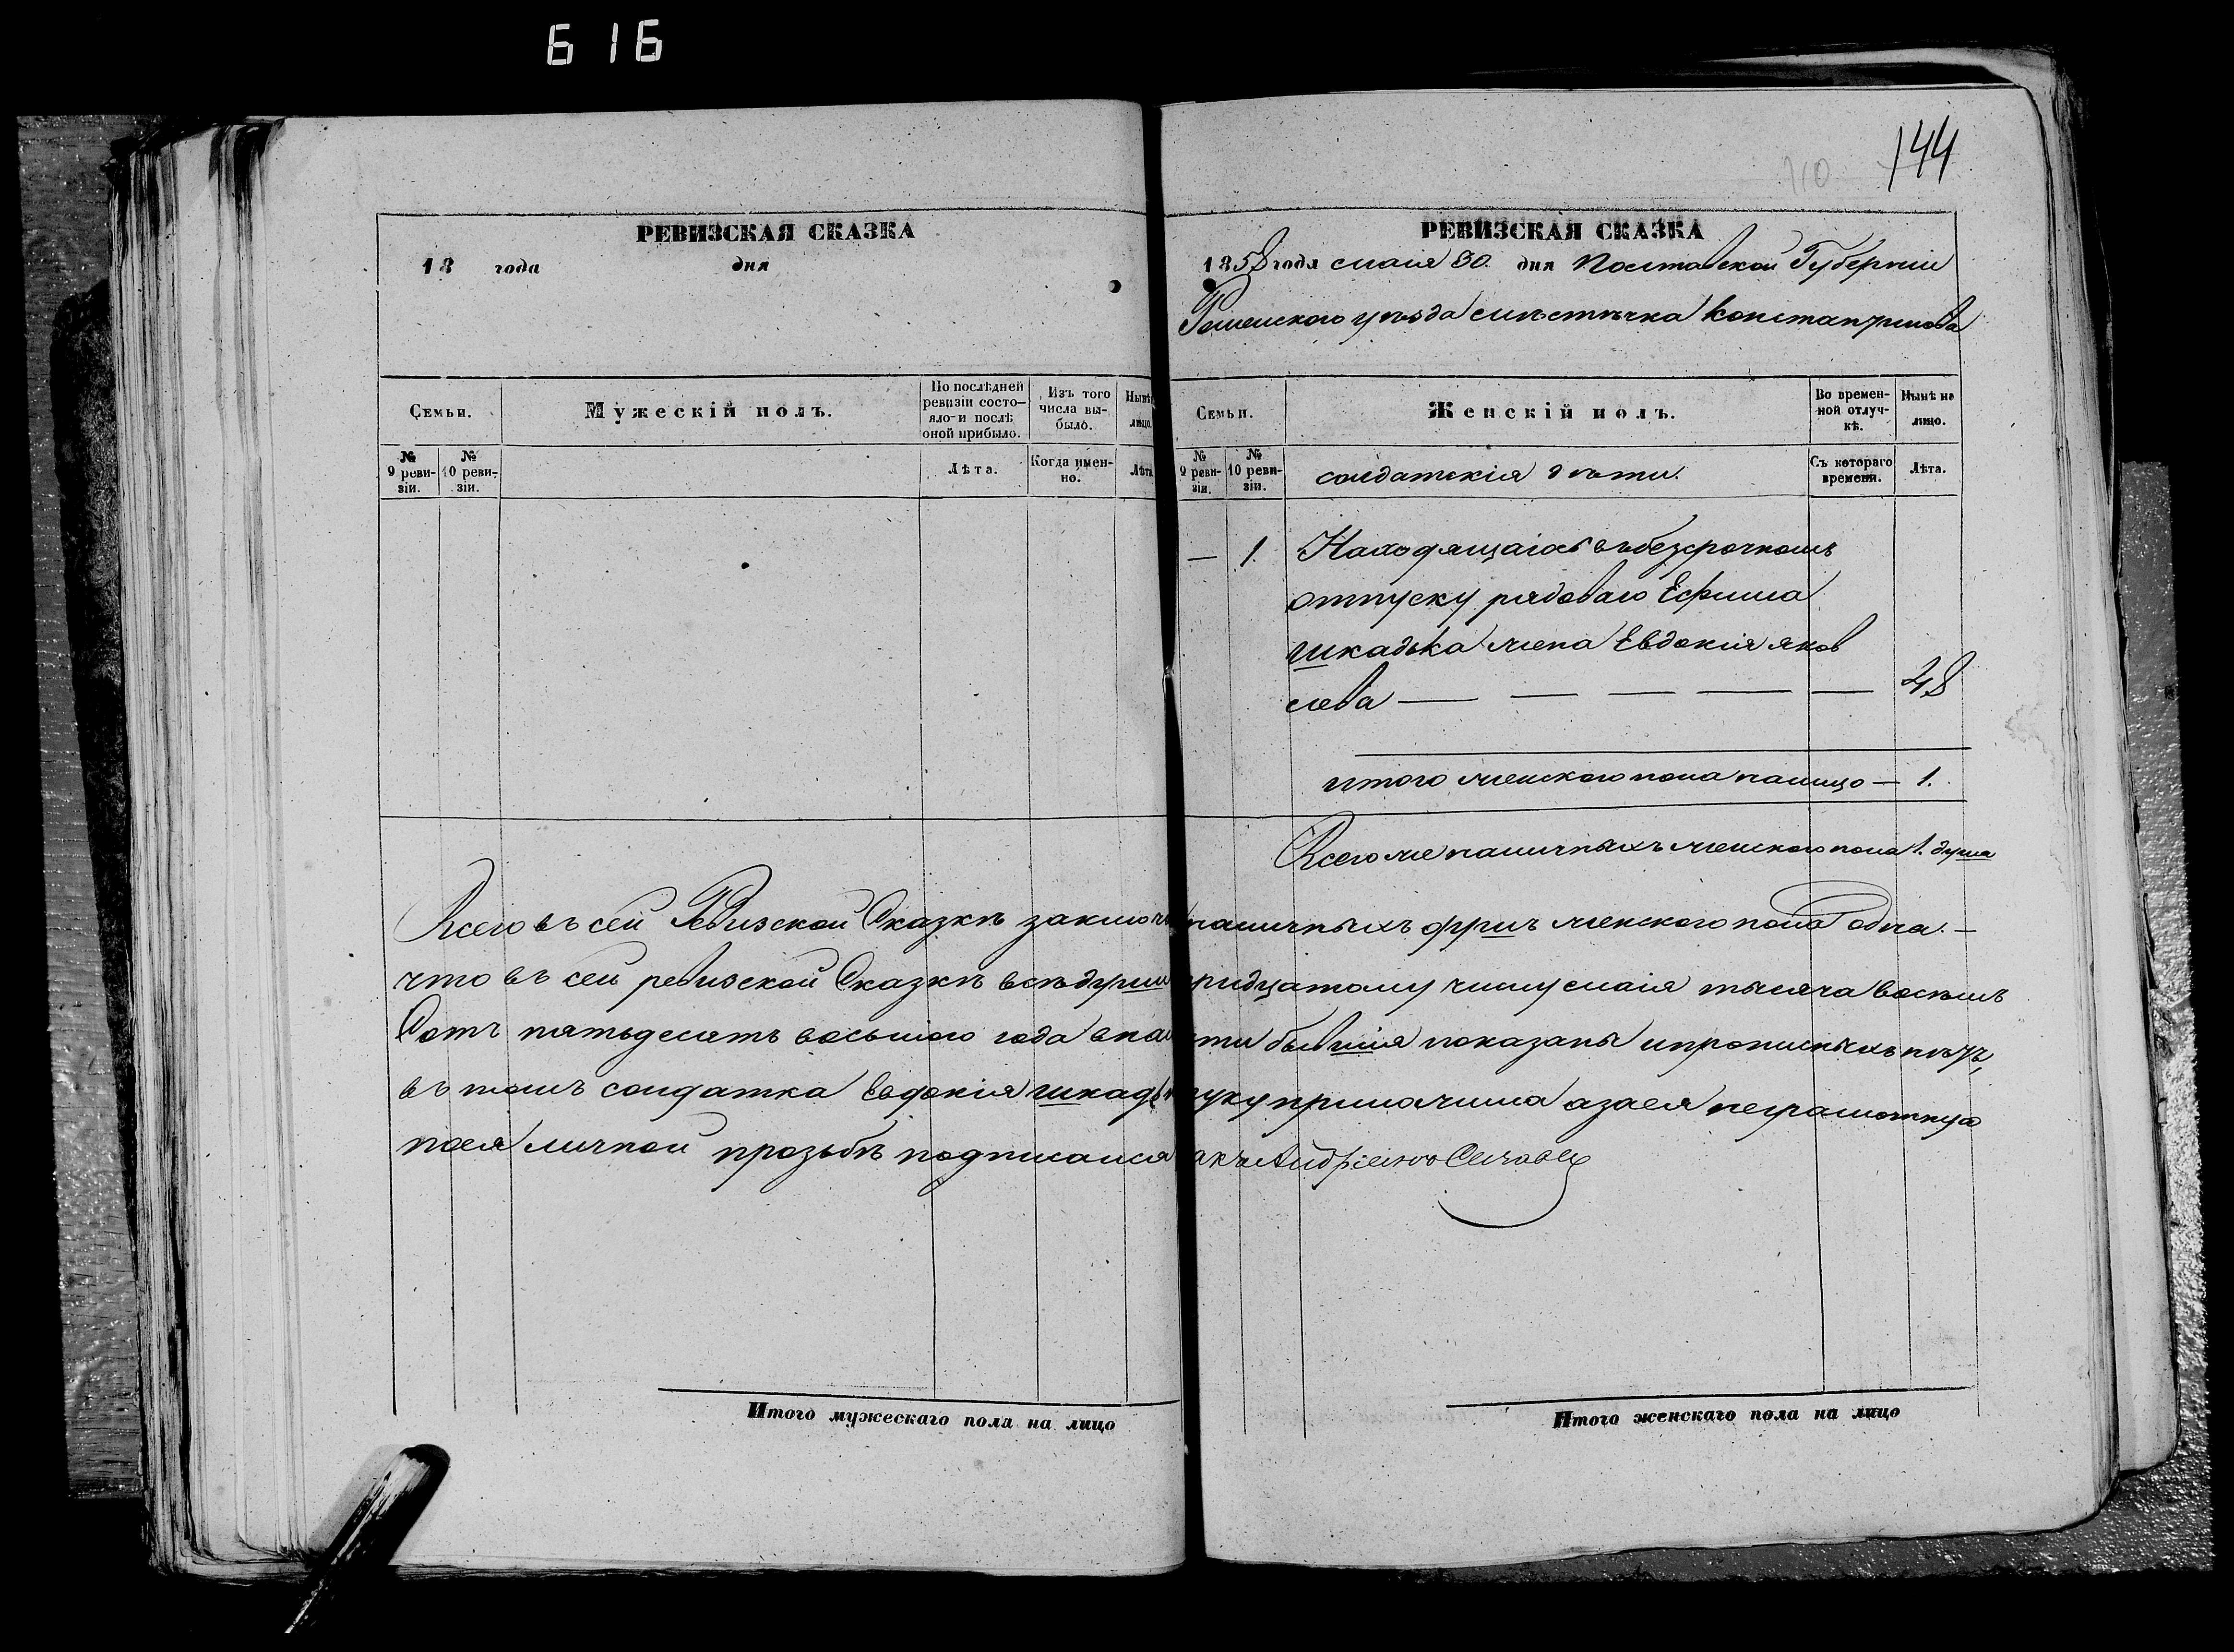 616
144
110
РЕВИЗСКАЯ СКАЗКА
18 года дня
Семьи.
Мужескій полъ.
По послѣдней ревизіи состояло и послѣ оной прибыло.
Изъ того числа выбыло.
Нынѣ лицо.
№ 9 ревизіи.
№ 10 ревизіи.
Лѣта.
Когда именно.
Лѣта
РЕВИЗСКАЯ СКАЗКА
1858 года маія 30. дня Полтавской Губерніи
Роменского уѣзда мѣстѣчка Константинова
Семьи.
Женскій полъ.
Во временной отлучкѣ.
Нынѣ на лицо.
№ 9 ревизіи.
№ 10 ревизіи.
солдатскія дѣти.
Съ котораго времени.
Лѣта.
— 1. Находящаіось въ безсрочномъ
отпуску рядоваго Ефима
шкадька жена Евдокія яков
лева — — — — — 48
итого женского пола налицо — 1.
Всего же наличныхъ женского пола 1. душа
Всего въ сей Ревизской Сказкѣ заключ наличныхъ душъ женского пола одна. —
что въ сей ревизской Сказкѣ всѣ души тридцатому числу маія тысяча восемь
Сотъ пятьдесятъ восьмого года внал сти бывшія показаны ипрописныхъ нѣтъ,
въ томъ солдатка Евдокія шкадьк руку приложила азаея неграмотную
поея личной прозьбѣ подписался